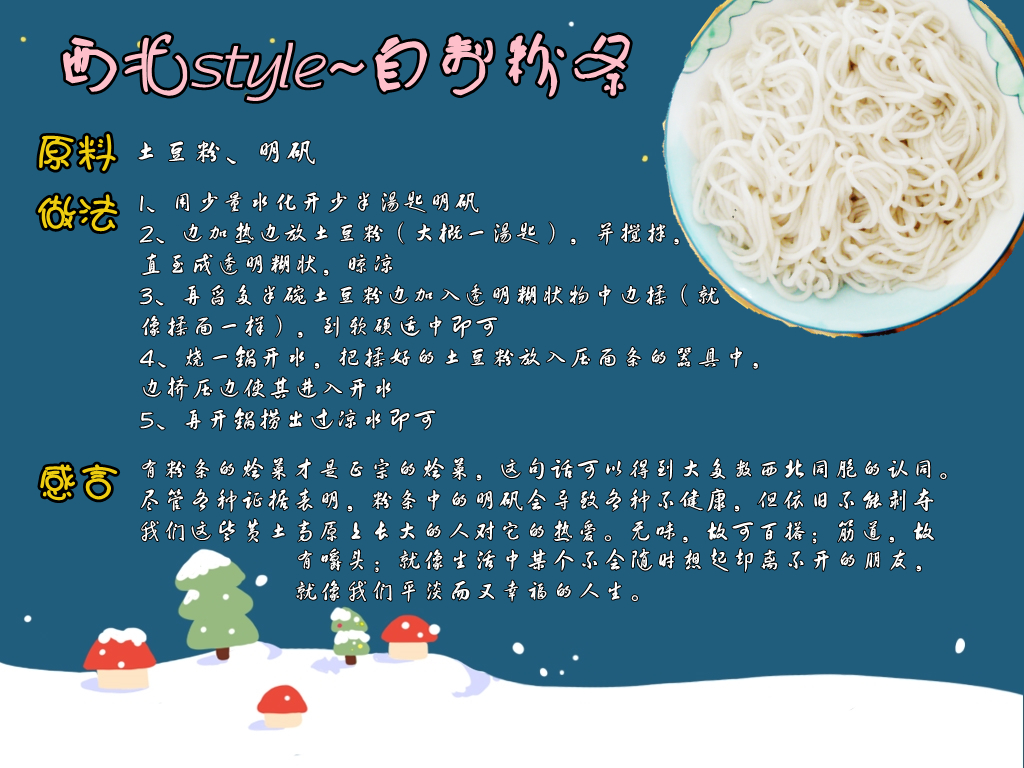 西北style~自製粉条
原料
土豆粉、明矾
做法
1、用少量水化开少半湯匙明矾
2、边加热边放土豆粉（大概一湯匙），并搅拌，
直至成透明糊状，晾凉
3、再舀多半碗土豆粉边加入透明糊状物中边揉（就
像揉面一样），到软硬适中即可
4、烧一锅开水，把揉好的土豆粉放入压面条的器具中，
边挤压边使其进入开水
5、再开锅捞出过凉水即可
感言
有粉条的烩菜才是正宗的烩菜，这句话可以得到大多数西北同胞的认同。
尽管各种证据表明，粉条中的明矾会导致各种不健康，但依旧不能剥夺
我们这些黄土高原上长大的人对它的热爱。无味，故可百搭；筋道，故
有嚼头；就像生活中某个不会随时想起却离不开的朋友，
就像我们平淡而又幸福的人生。